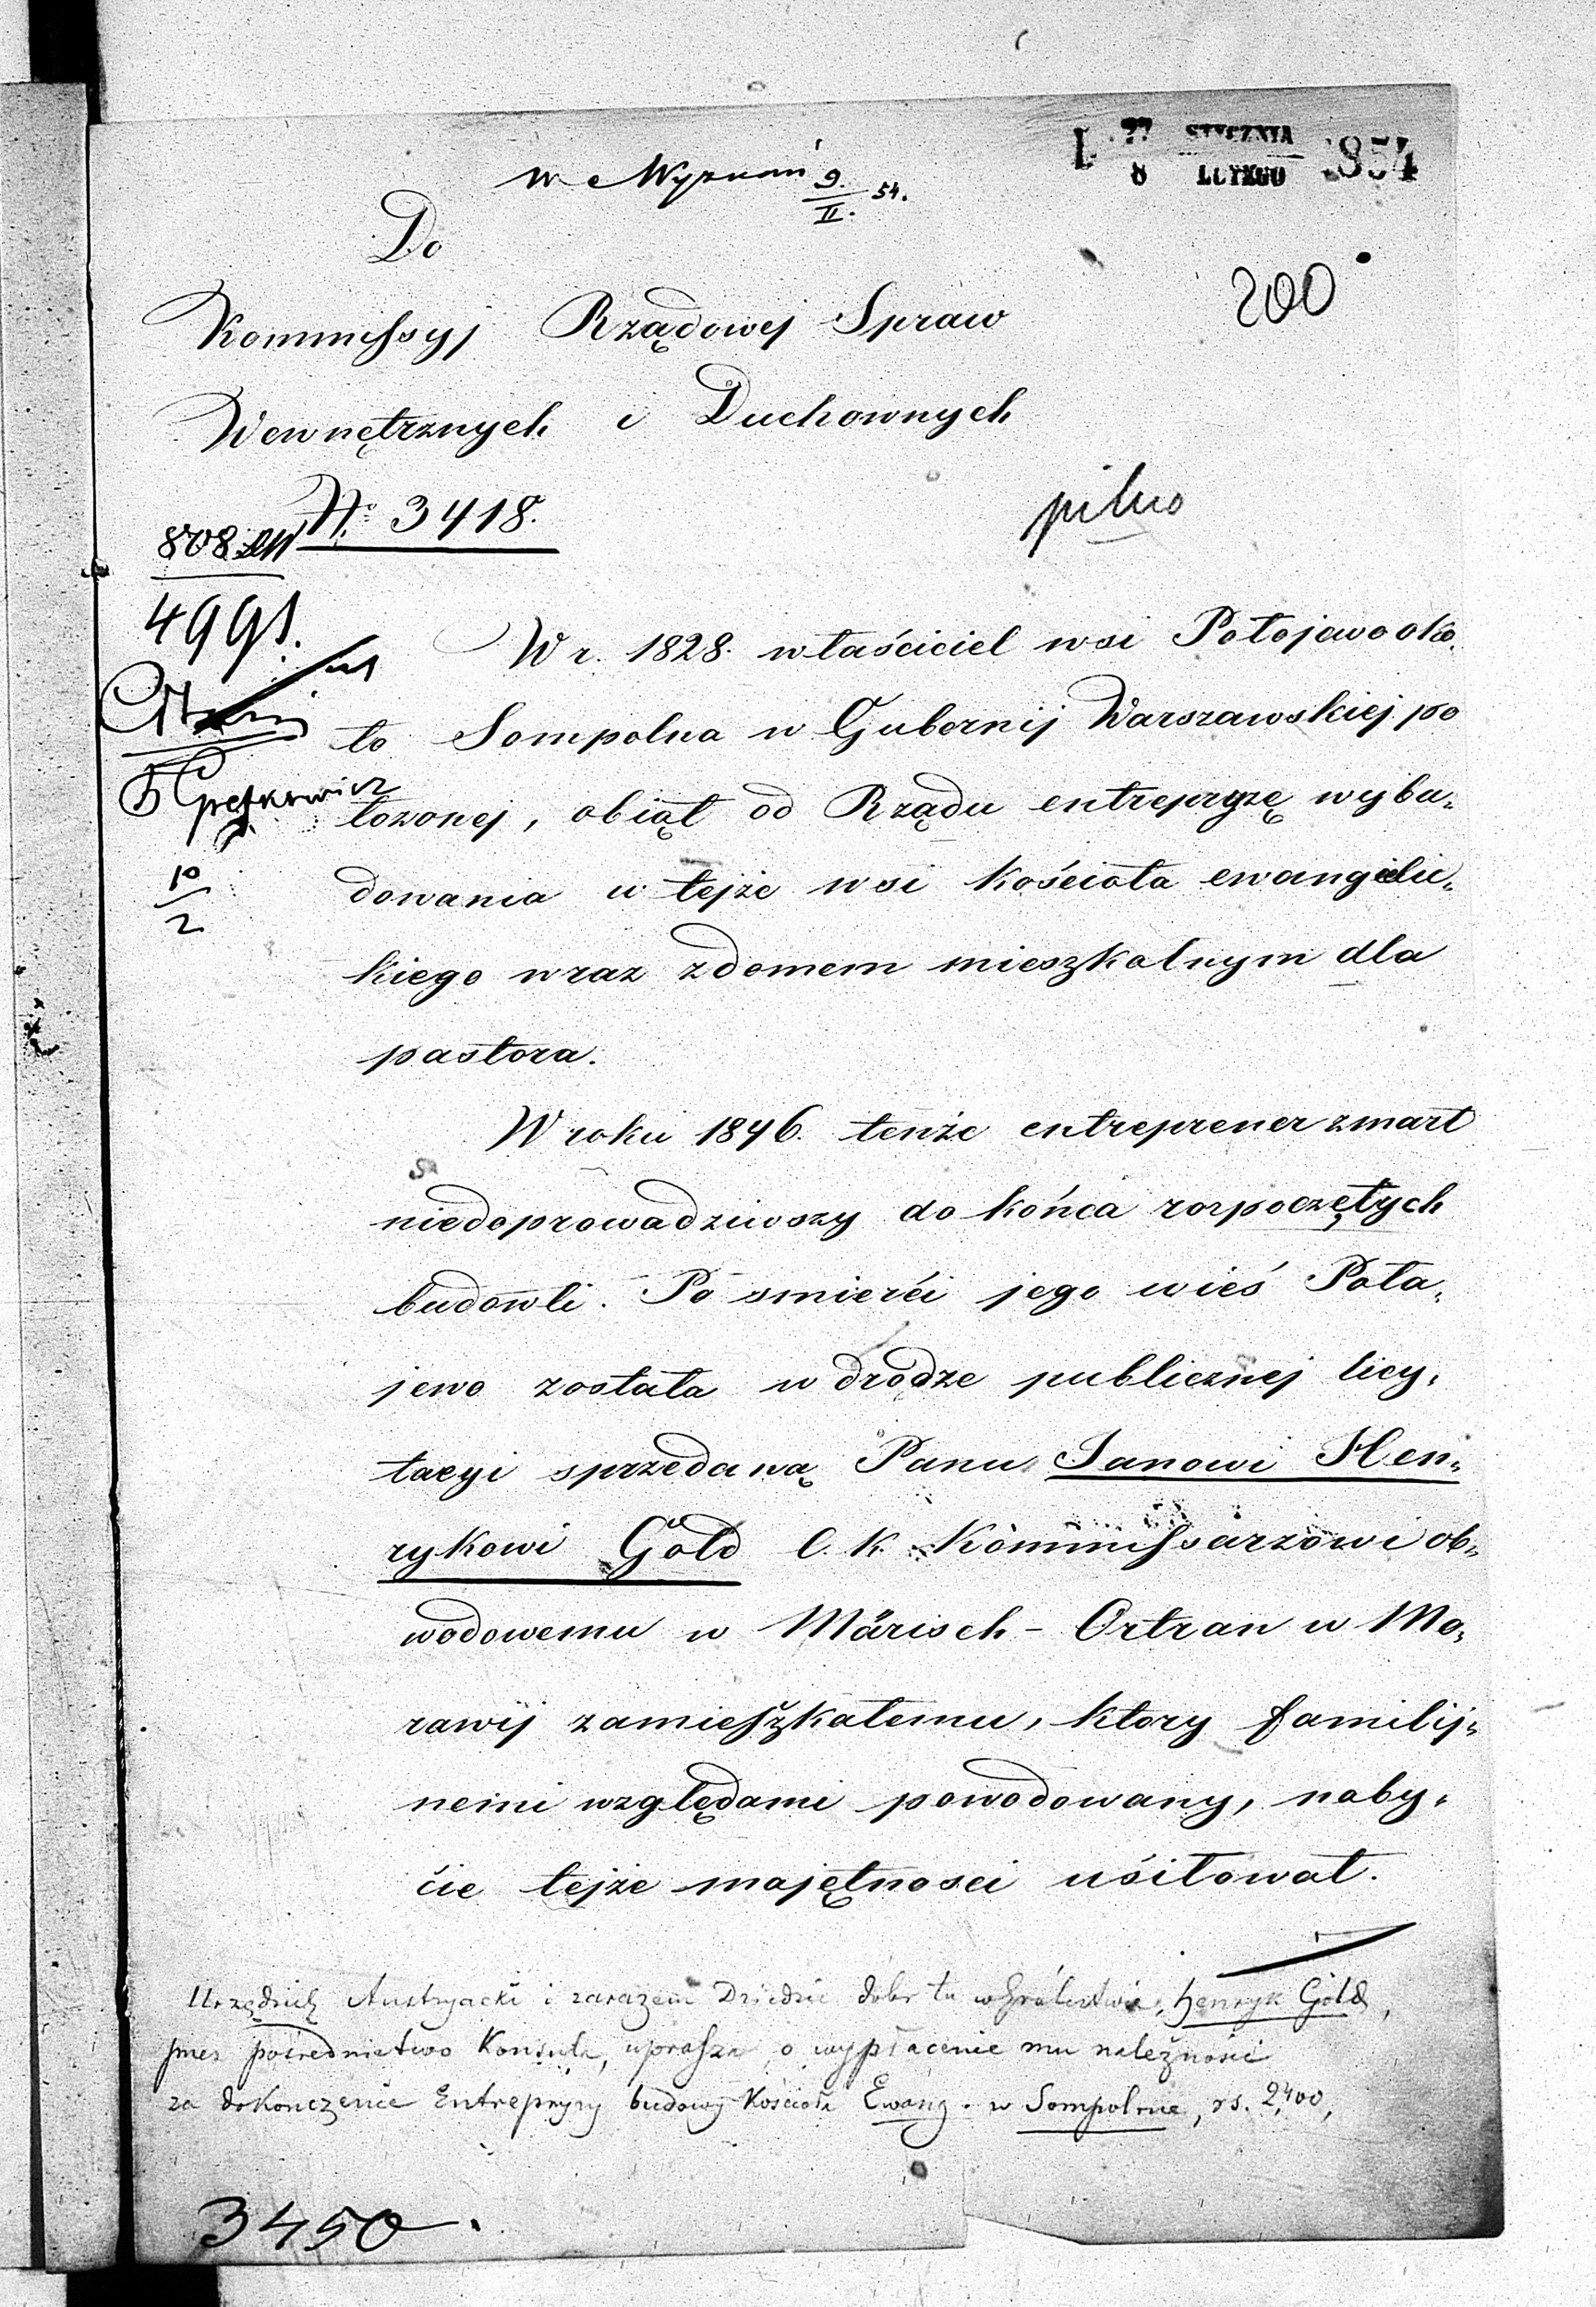 27 STYCZNIA 1854
8 LUTEGO
w Wyznań 9/II. 54.
Do
200
Kommissyj Rządowej Spraw
Wewnętrznych i Duchownych
No 3418.
pilno
808
4991.
10/2
W r. 1828. właściciel wsi Połojewo oko,
ło Sompolna w Gubernij Warszawskiej po
łożonej, obiął od Rządu entrepryzę wybu,
dowania w tejże wsi Kościoła ewangelic,
kiego wraz z domem mieszkalnym dla
pastora.
W roku 1846. tenże entreprener zmarł
niedoprowadziwszy do końca rozpoczętych
budowli. Po smierći jego wieś Poła,
jewo została w drodze publicznej licy,
tacyi sprzedaną Panu Janowi Hen,
rykowi Gold C. K. Kommissarzowi ob,
wodowemu w Märisch - Ortran w Mo,
rawij zamieszkałemu, ktory familij,
nemi względami powodowany, naby,
ćie tejże majętnosci uśiłował.
Urzędnik Austryacki i zarazem Dziedzic dobr tu w Królestwie, Henryk Gold,
przez pośrednictwo Konsula, uprasza o wypłacenie mu należności
za dokonczenie Entrepryzy budowy Kościoła Ewang. w Sompolnie, rs. 2,400,
3450.